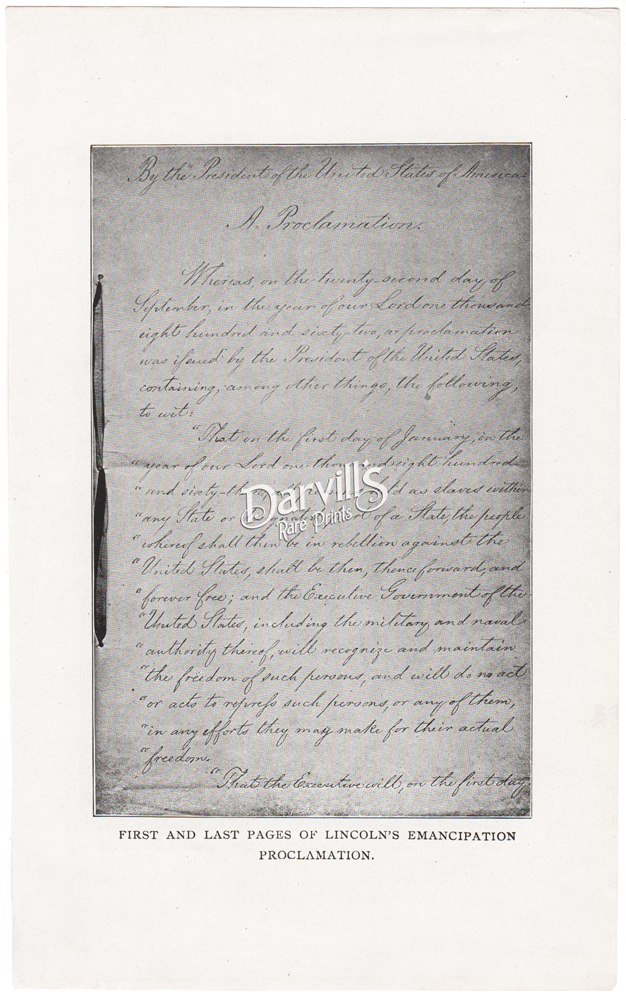 By the President of the United States of America:
A Proclamation.
Whereas, on the twenty-second day of
September, in the year of our Lord one thousand
eight hundred and sixty-two, a proclamation
was issued by the President of the United States,
containing, among other things, the following,
to wit:
"That on the first day of January, in the
"year of our Lord one thousand eight hundred
"and sixty-th as slaves within
"any State or of a State, the people
"whereof shall then be in rebellion against the
"United States, shall be then, thenceforward, and
"forever free; and the Executive Government of the
"United States, including the military and naval
"authority thereof, will recognize and maintain
"the freedom of such persons, and will do no act
"or acts to repress such persons, or any of them,
"in any efforts they may make for their actual
"freedom.
"That the Executive will, on the first day
Darvill's
Rare Prints
FIRST AND LAST PAGES OF LINCOLN'S EMANCIPATION
PROCLAMATION.